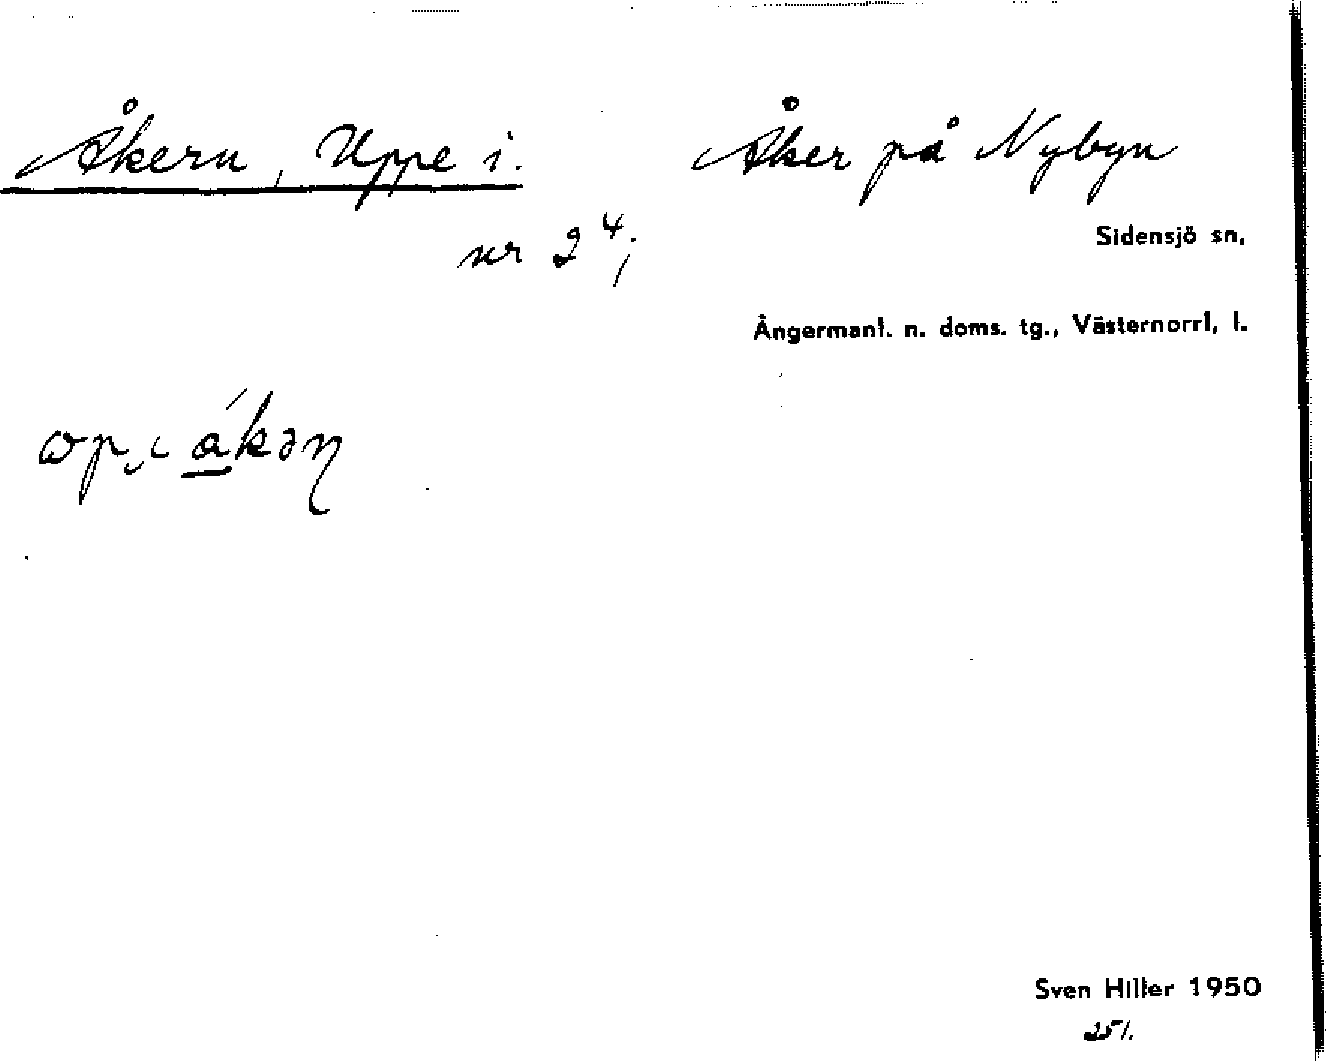 Åkern, Uppe i.
Åker på Nybyn
nr 2⁴;
Sidensjö sn.
Ångermanl. n. doms. tg., Västernorrl, l.
Sven Hiller 1950
251.